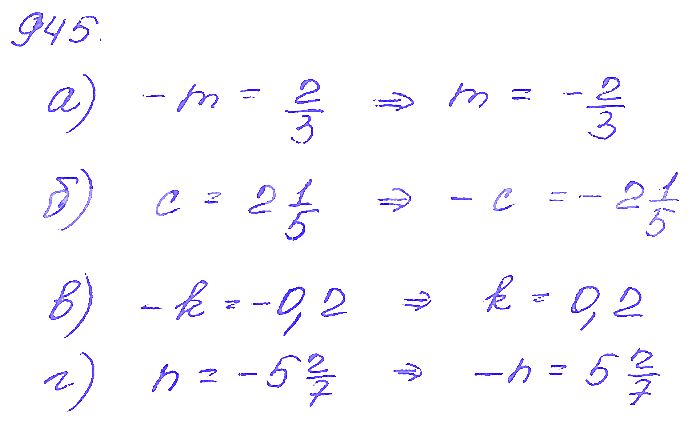 945.
а) -m = 2/3 ⇒ m = -2/3
б) c = 2 1/5 ⇒ -c = -2 1/5
в) -k = -0,2 ⇒ k = 0,2
г) n = -5 2/7 ⇒ -n = 5 2/7